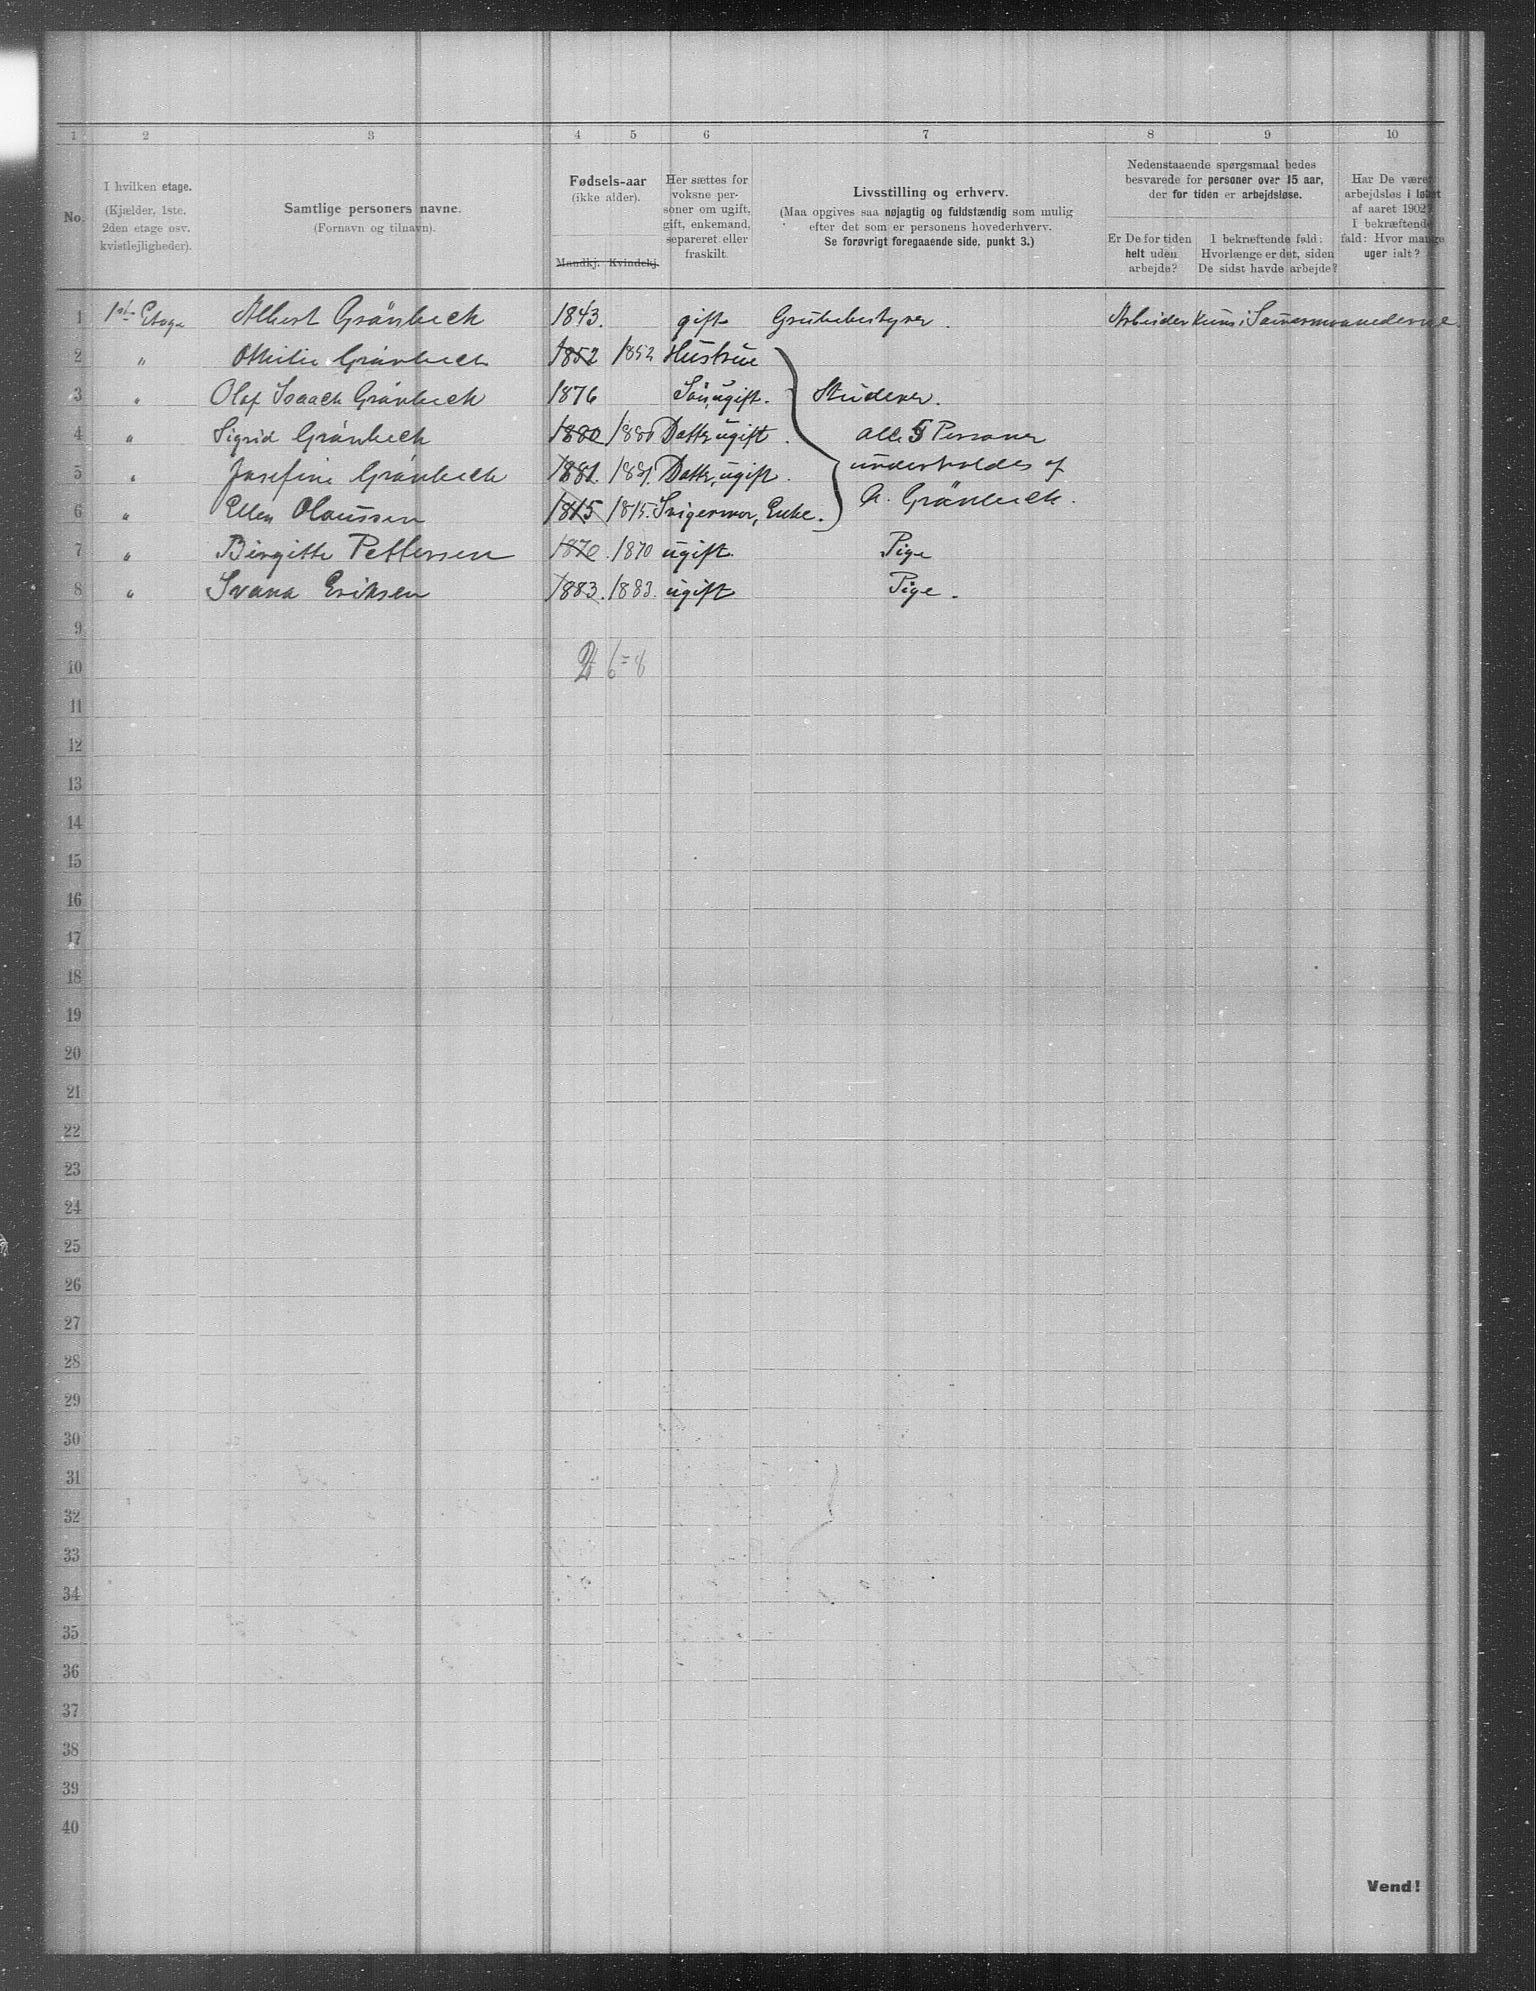 1 2 3 4 5 6 7 8 9 10
No.
I hvilken etage.
(Kjælder, 1ste.
2den etage osv.
kvistlejligheder).
Samtlige personers navne.
(Fornavn og tilnavn).
Fødsels-aar
(ikke alder).
Mandkj. Kvindekj.
Her sættes for
voksne per-
soner om ugift,
gift, enkemand,
separeret eller
fraskilt.
Livsstilling og erhverv.
(Maa opgives saa nøjagtig og fuldstændig som mulig
efter det som er personens hovederhverv.
Se forøvrigt foregaaende side, punkt 3.)
Nedenstaaende spørgsmaal bedes
besvarede for personer over 15 aar,
der for tiden er arbejdsløse.
Er De for tiden
helt uden
arbejde?
I bekræftende fald:
Hvorlænge er det, siden
De sidst havde arbejde?
Har De været
arbejdsløs i løbet
af aaret 1902?
I bekræftende
fald: Hvor mange
uger ialt?
1 1st Etage Albert Grönbech 1843. gift Grubebestyrer. Arbeider kun i Sommermaanederne.
2 " Othilie Grönbech 1852 1852 Hustrue
3 " Olaf Isaach Grönbech 1876 Sön, ugift. Studerer.
4 " Sigrid Grönbech 1880 1880 Datter, ugift. alle 5 Personer
5 " Josefine Grönbech 1881. 1881. Datter, ugift. underholdes af
6 " Ellen Olaussen 1815 1815. Svigermor, Enke. A. Grönbech.
7 " Birgitte Pettersen 1870. 1870 ugift. Pige
8 " Svana Eriksen 1883. 1883. ugift Pige.
9
10 2 6 = 8
11
12
13
14
15
16
17
18
19
20
21
22
23
24
25
26
27
28
29
30
31
32
33
34
35
36
37
38
39
40
Vend!